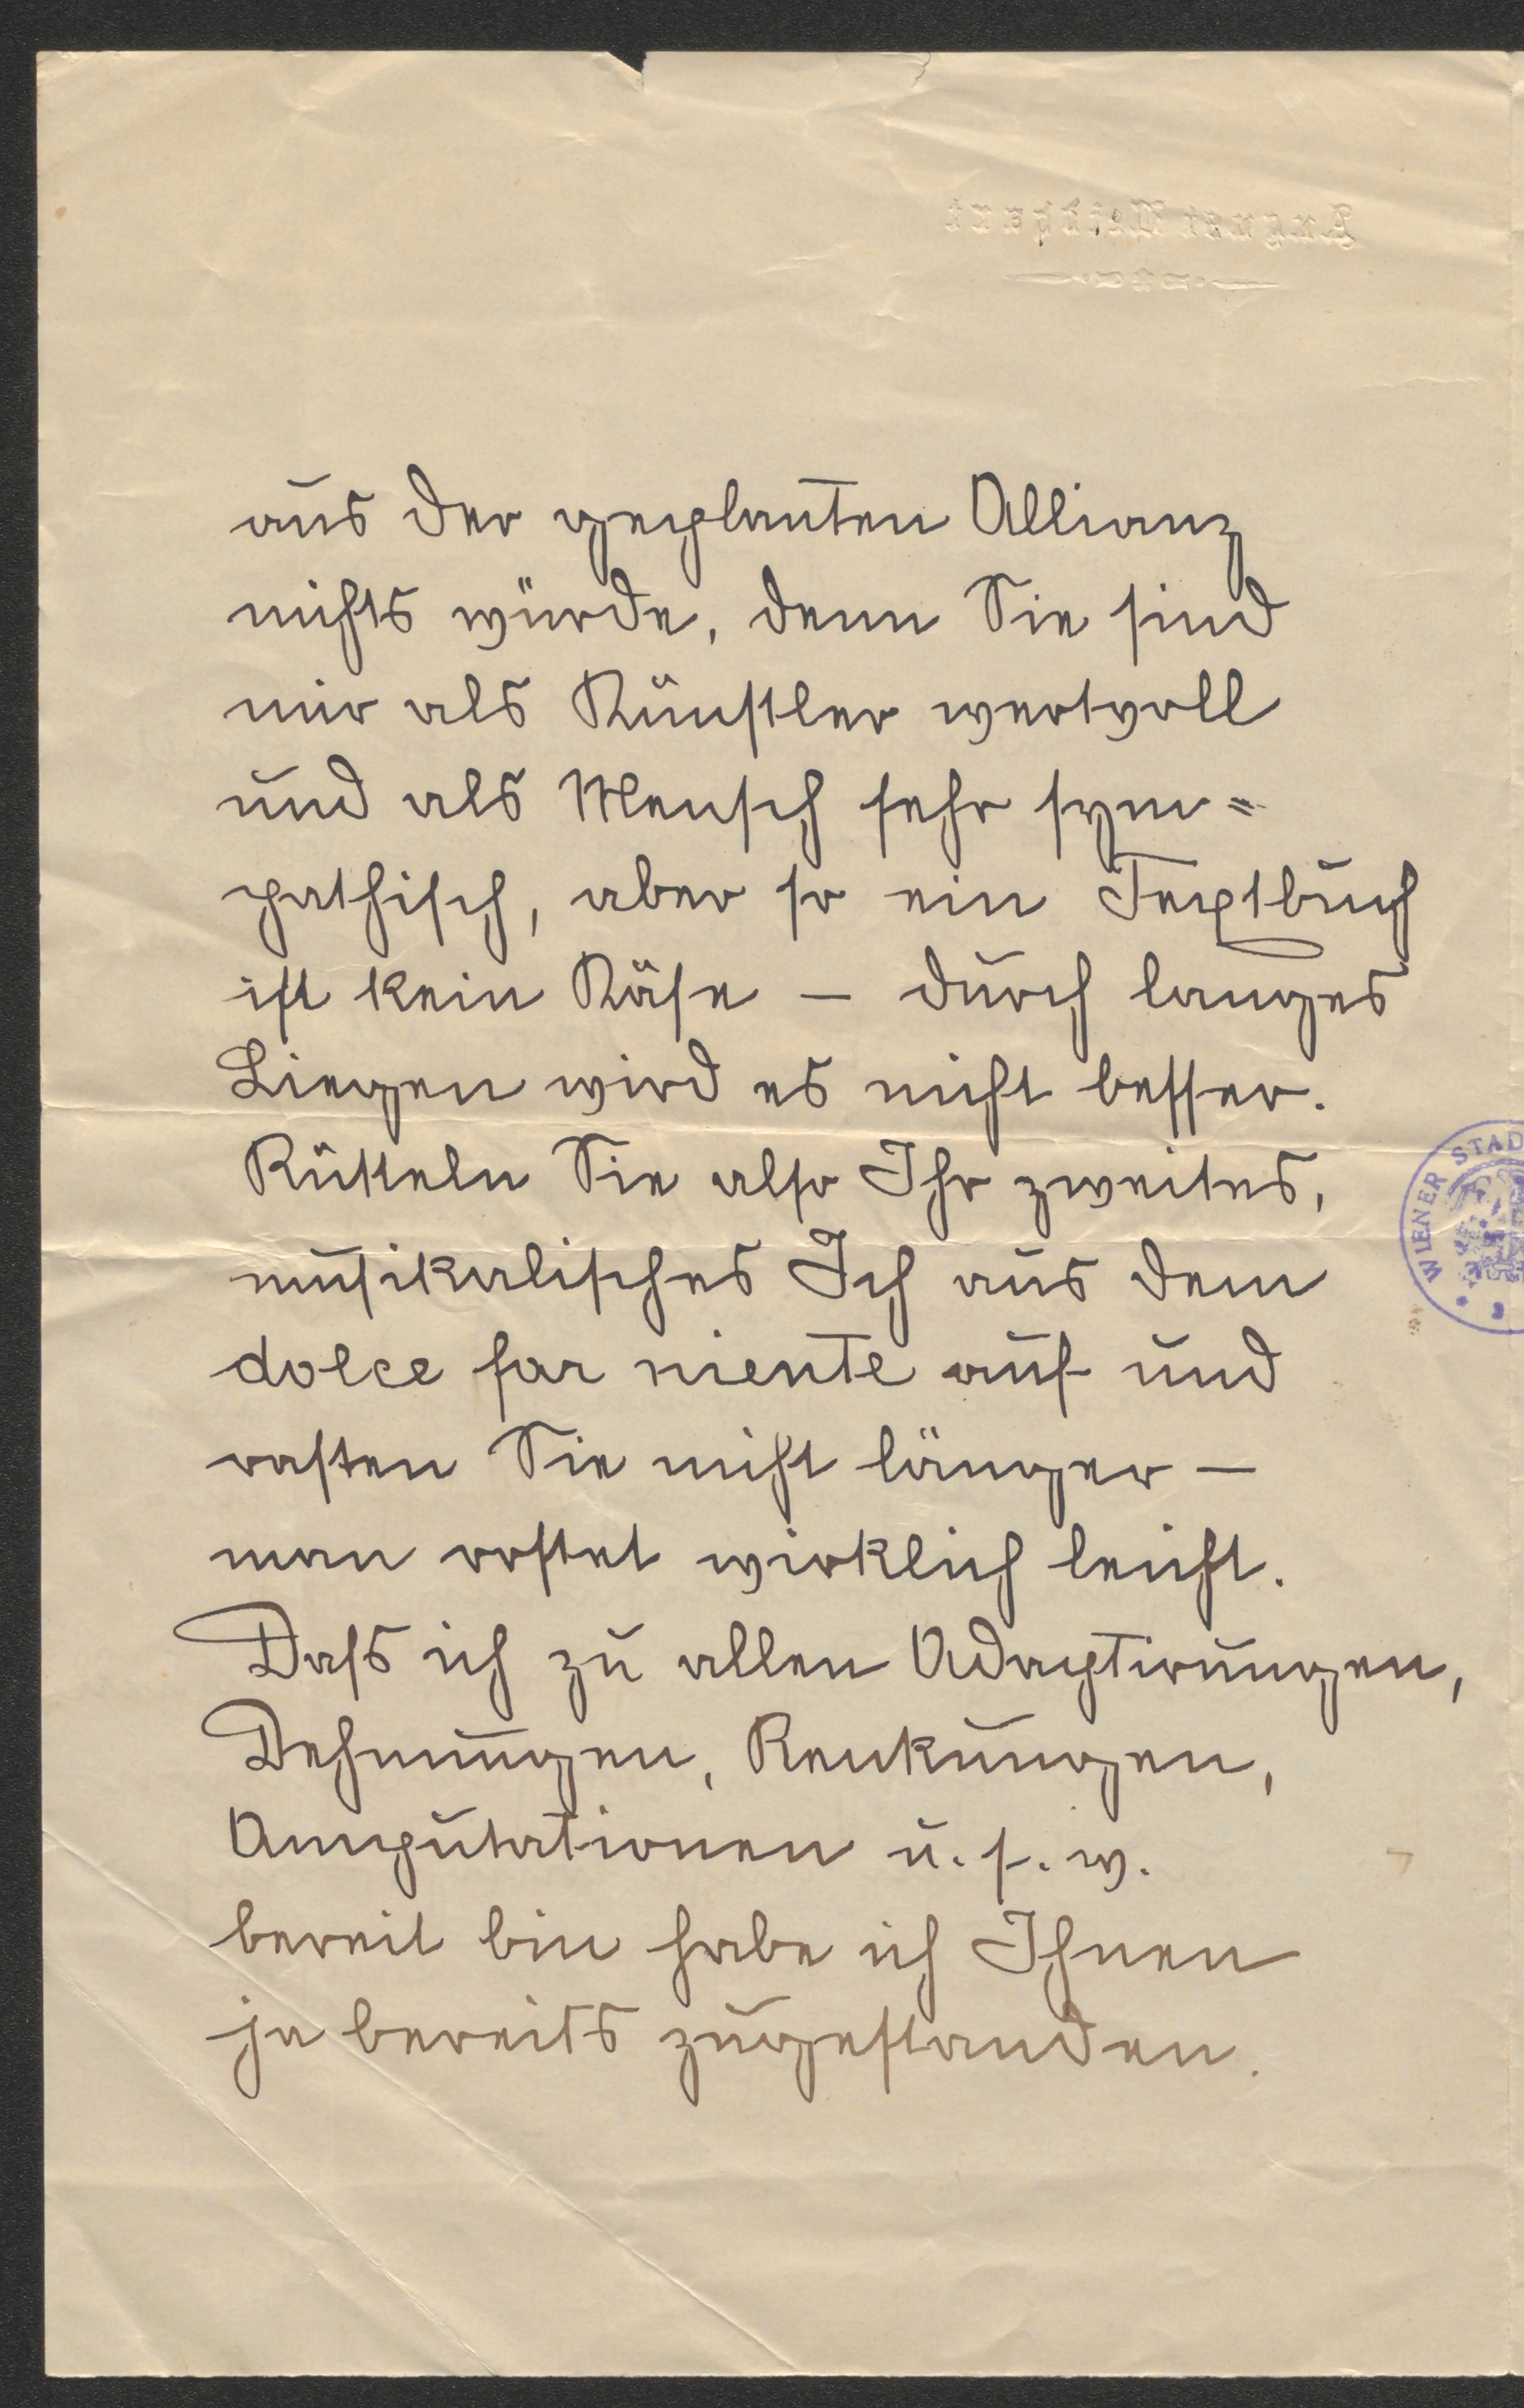 aus der geplanten Allianz
nichts würde, denn Sie sind
mir als Künstler wertvoll
und als Mensch sehr sym=
pathisch, aber so ein Textbuch
ist kein Käse – durch langes
Liegen wird es nicht besser.
Rütteln Sie also Ihr zweites,
musikalisches Ich aus dem
dolce far niente auf und
rasten Sie nicht länger –
man rostet wirklich leicht.
Dass ich zu allen Adaptirungen,
Dehnungen, Renkungen,
Amputationen u. s. w.
bereit bin habe ich Ihnen
ja bereits zugestanden.
WIENER STAD